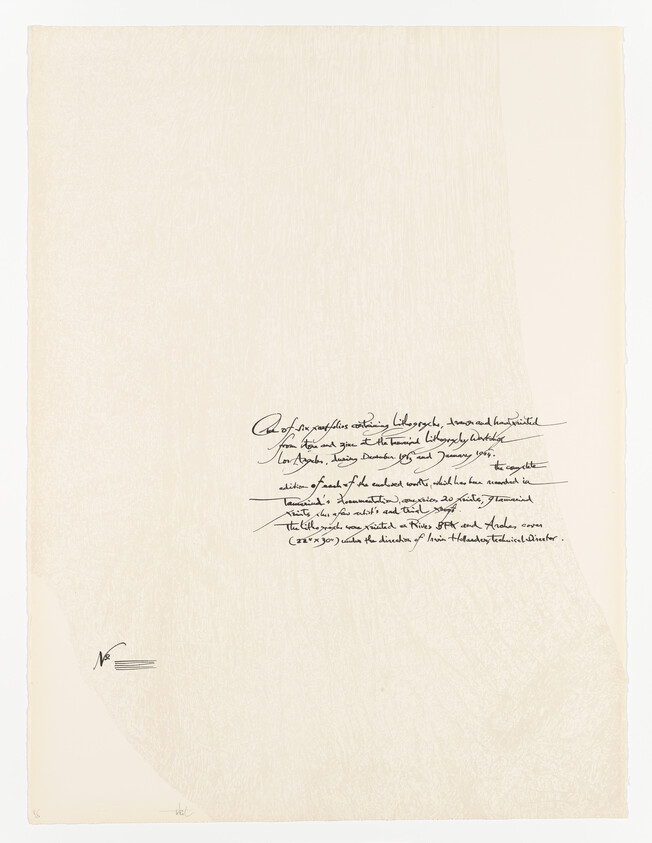 One of six portfolios containing lithographs, drawn and hand printed
from stone and zinc at the Tamarind Lithography Workshop
Los Angeles, during December 1963 and January 1964.
The complete
edition of each of the enclosed works, which has been recorded in
Tamarind's documentation, comprises 20 prints, 9 Tamarind
prints, plus a few artist's and trial proofs.
The lithographs were printed on Rives BFK and Arches cover
(22" x 30") under the direction of Irwin Hollander, technical Director.
No